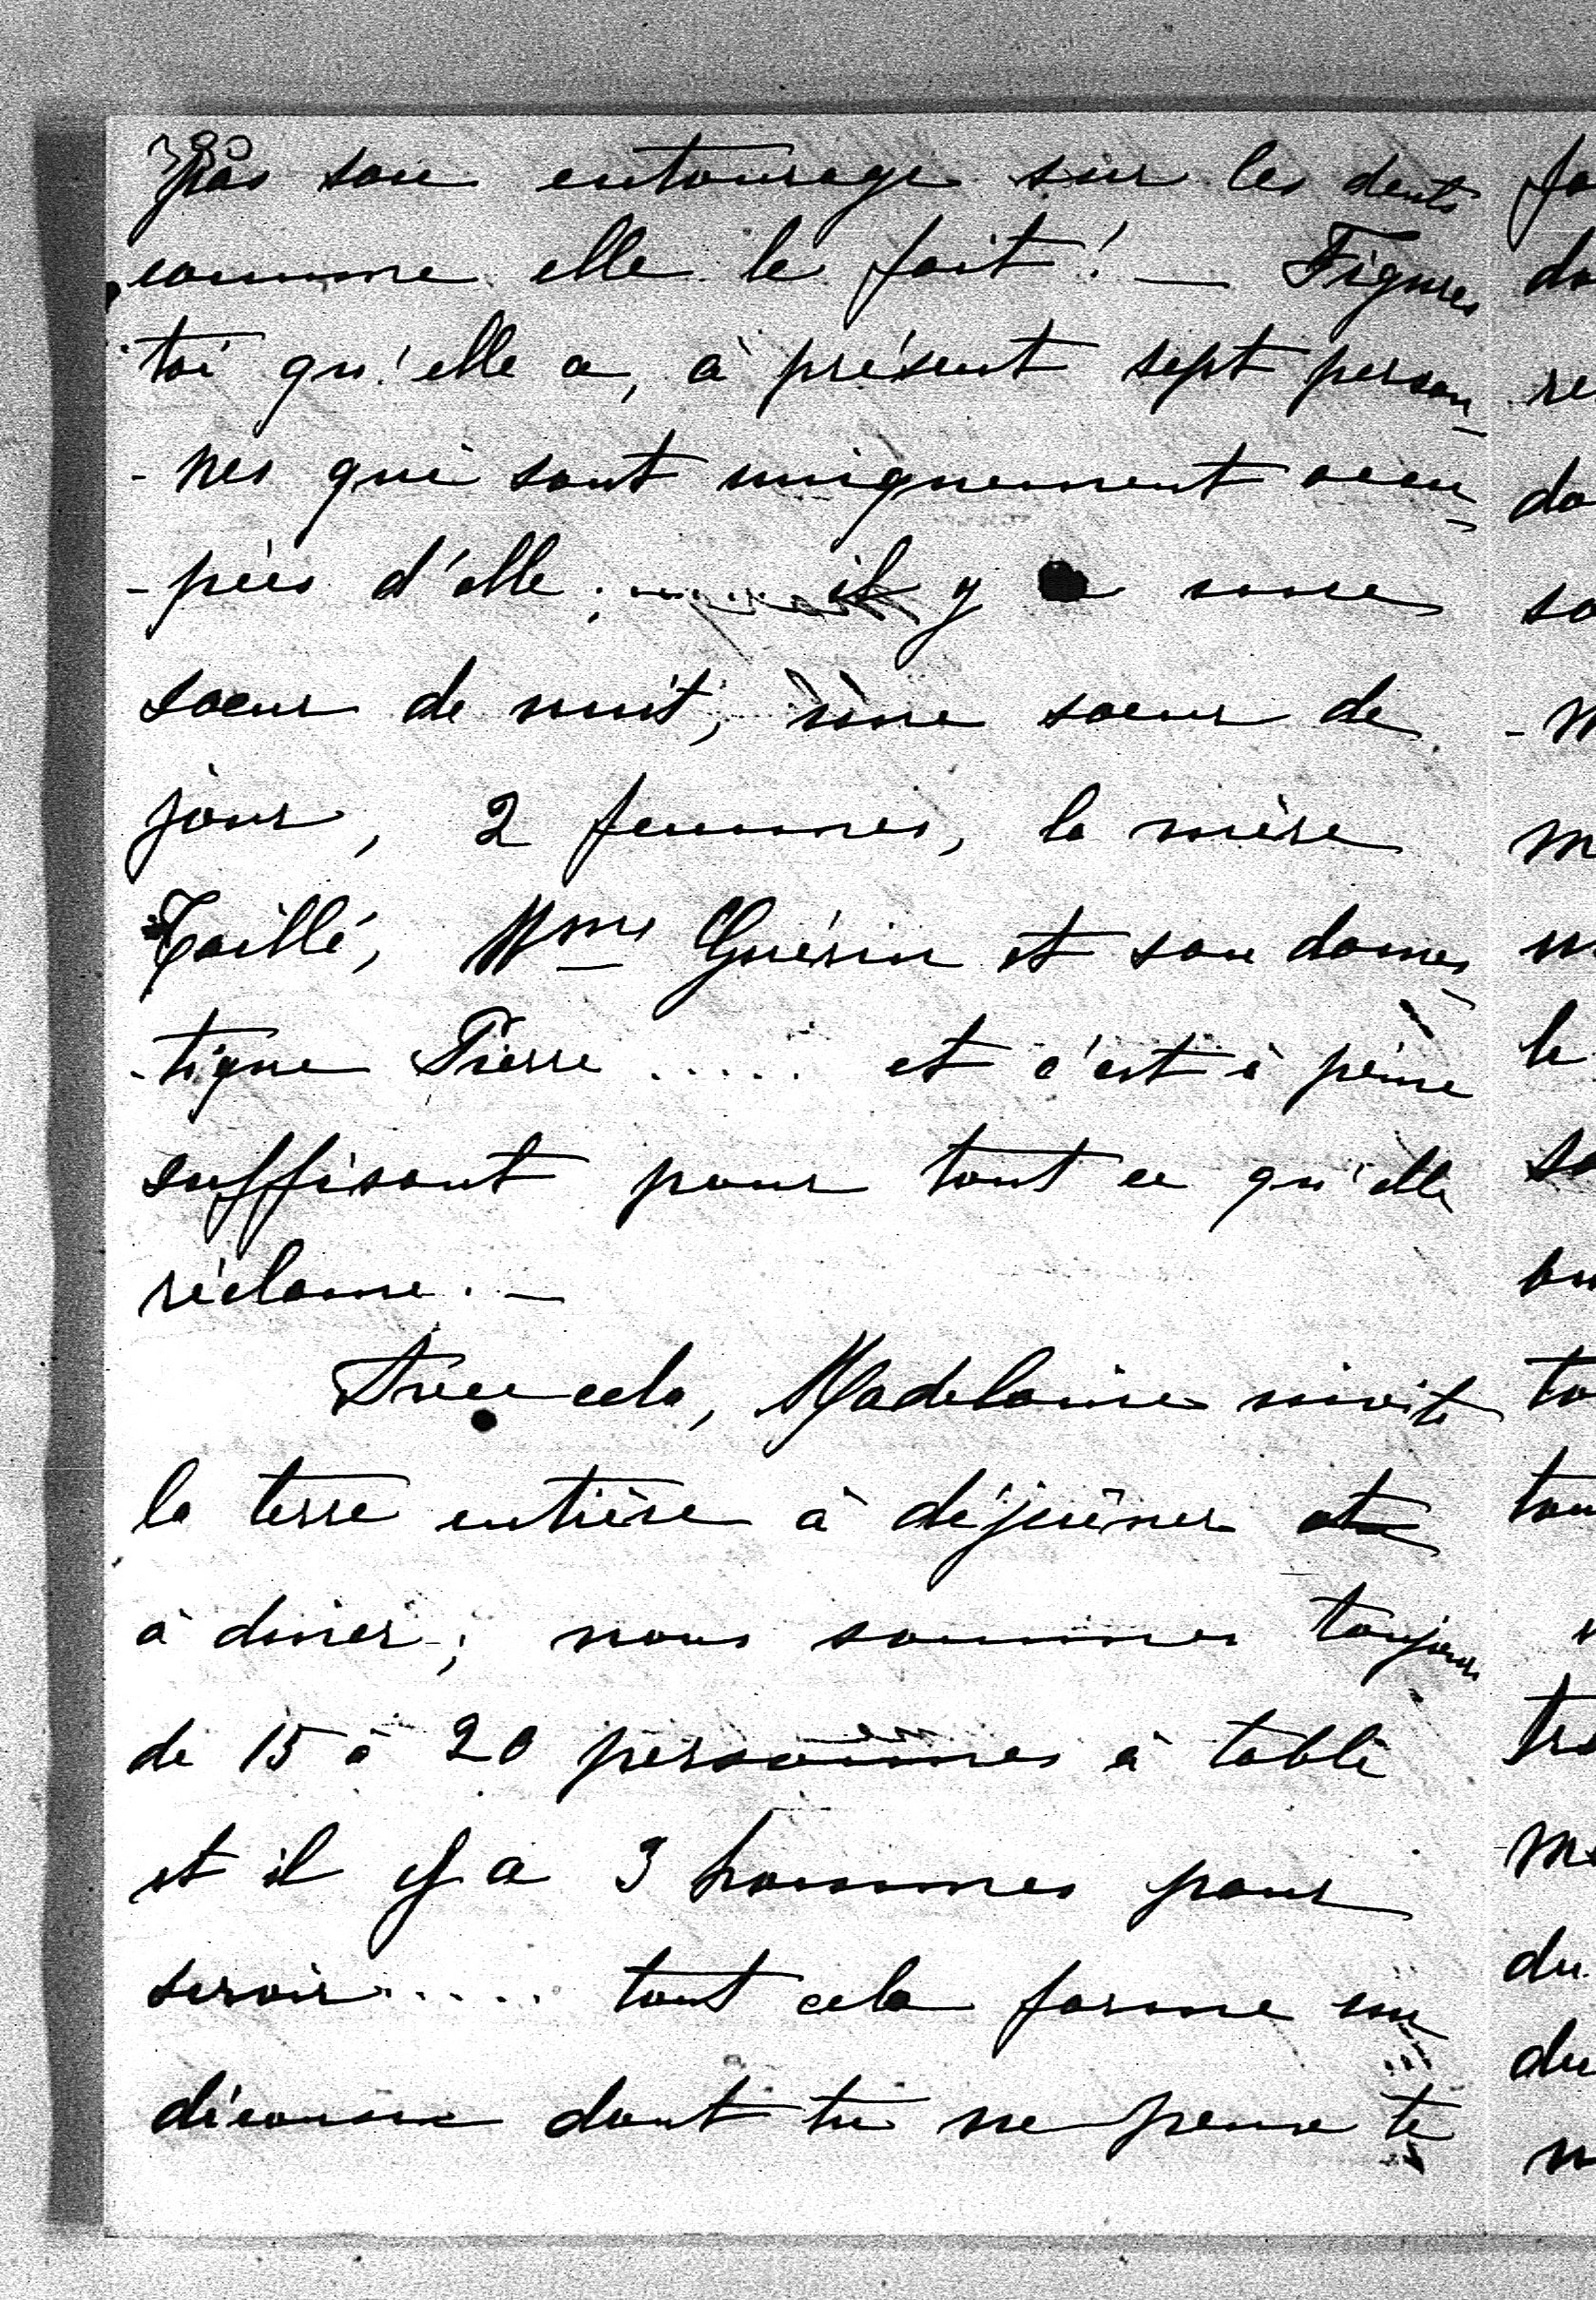 pas son entourage sur les dents
comme elle le fait! — Figures
toi qu'elle a, à présent sept person-
-nes qui sont uniquement occu-
-pées d'elle; il y a une
soeur de nuit, une soeur de
jour, 2 femmes, la mère
Taillé, Mme Guérin et son domes-
-tique Pierre ..... et c'est à peine
suffisant pour tout ce qu'elle
réclame. —
Avec cela, Madelaine invite
la terre entière à déjeûner et
à diner; nous sommes toujours
de 15 à 20 personnes à table
et il y a 3 hommes pour
servir ..... tout cela forme un
décousu dont tu ne peux te